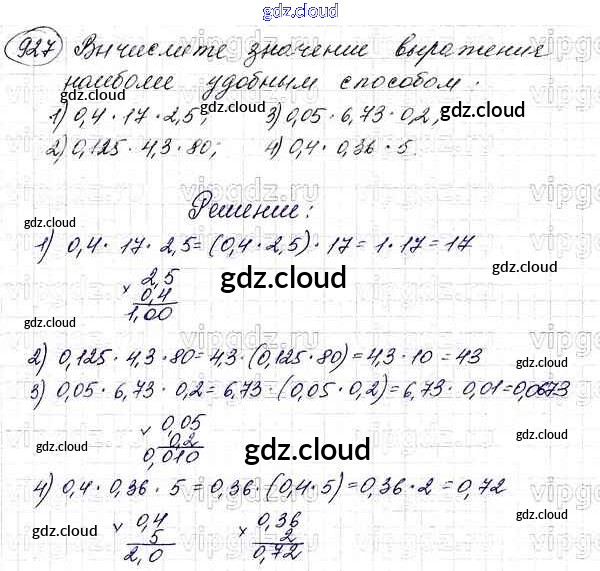 gdz.cloud
927 Вычислите значение выражения
наиболее удобным способом:
gdz.cloud
1) 0,4 · 17 · 2,5; 3) 0,05 · 6,73 · 0,2;
gdz.cloud gdz.cloud
2) 0,125 · 4,3 · 80; 4) 0,4 · 0,36 · 5.
vipgdz.ru
Решение:
gdz.cloud gdz.cloud
1) 0,4 · 17 · 2,5 = (0,4 · 2,5) · 17 = 1 · 17 = 17
× 2,5
0,4
1,00
gdz.cloud gdz.cloud gdz.cloud
2) 0,125 · 4,3 · 80 = 4,3 · (0,125 · 80) = 4,3 · 10 = 43
gdz.cloud
3) 0,05 · 6,73 · 0,2 = 6,73 · (0,05 · 0,2) = 6,73 · 0,01 = 0,0673
× 0,05
0,2
0,010
gdz.cloud gdz.cloud gdz.cloud
4) 0,4 · 0,36 · 5 = 0,36 · (0,4 · 5) = 0,36 · 2 = 0,72
× 0,4 × 0,36
5 2
2,0 0,72
gdz.cloud gdz.cloud